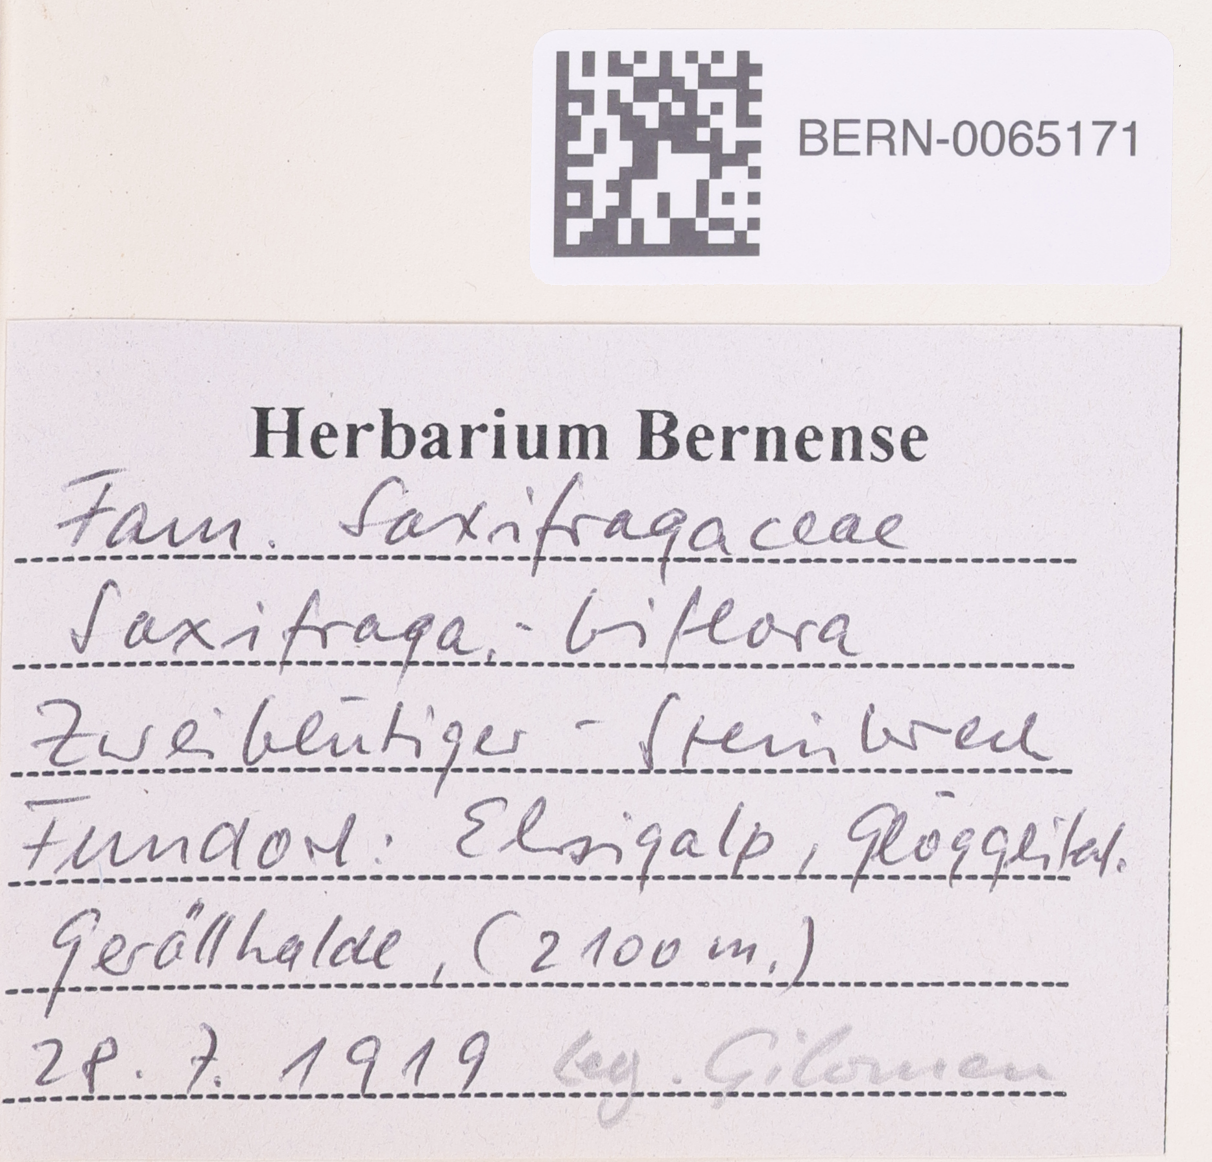 BERN-0065171
Herbarium Bernense
Fam. Saxifragaceae
Saxifraga - biflora
Zweiblütiger - Steinbrech
Fundort: Elsigalp, Glögglital.
Geröllhalde, (2100 m.)
28. 7. 1919 leg. Gilomen